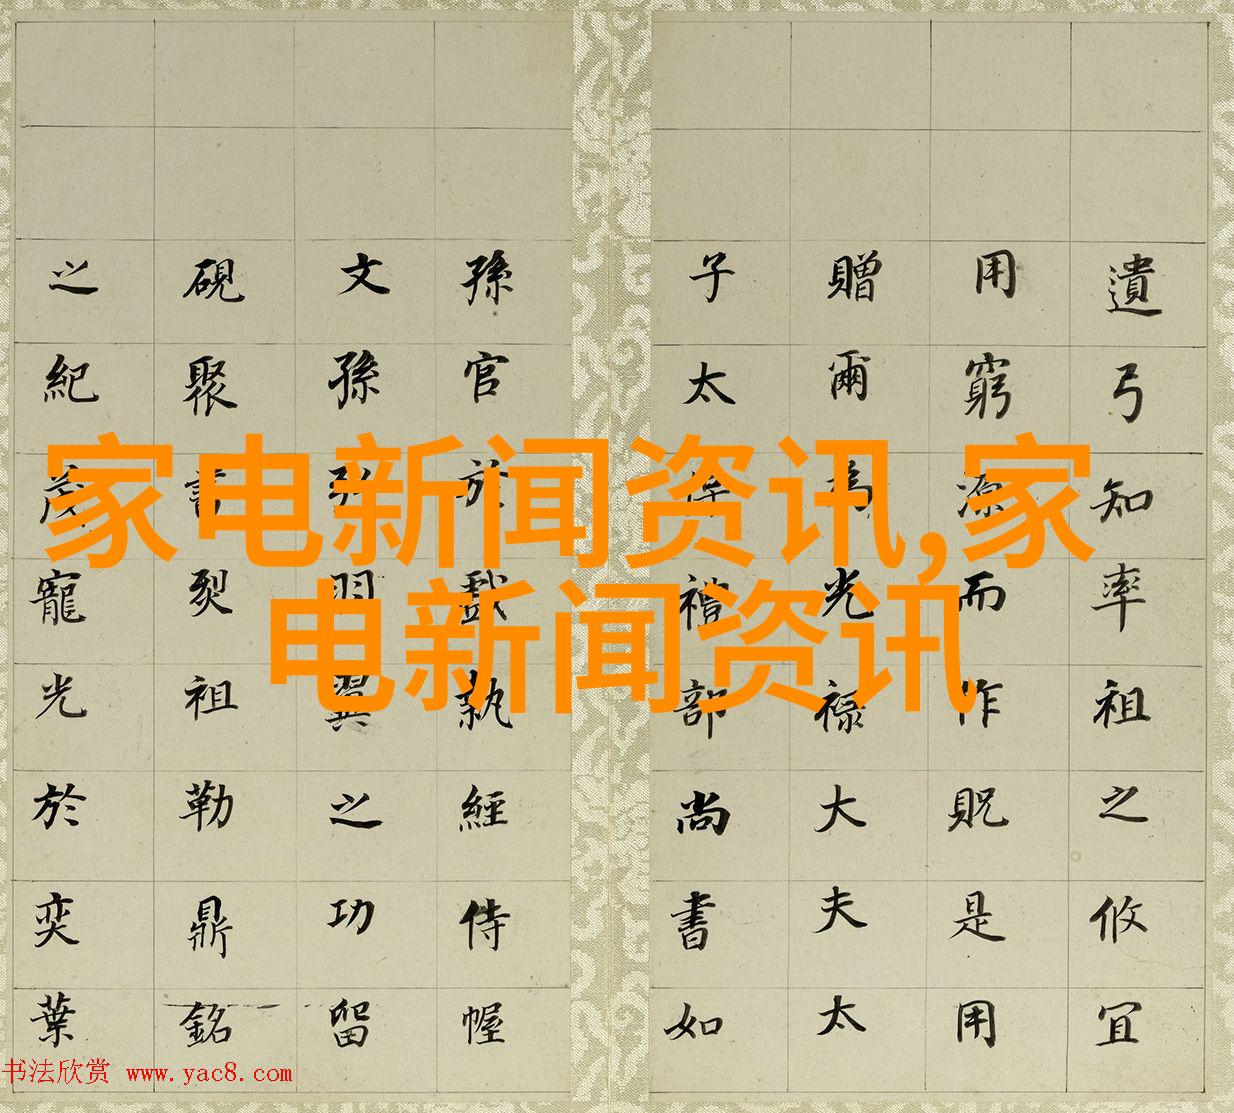 遺弓知率祖之攸宜
用窮源而作貺是用
贈爾為光祿大夫太
子太保禮部尚書如
孫官於戲執經侍幄
文孫弥羽翼之功留
硯聚書烈祖勒鼎銘
之紀茂寵光於奕葉
家电新闻资讯,家
电新闻资讯
书法欣赏 www.yac8.com